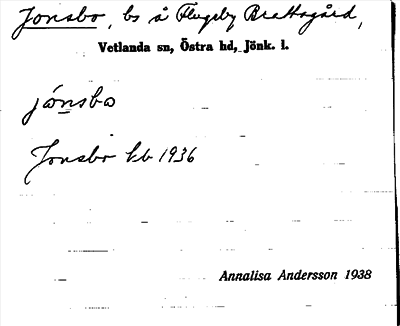 Jonsbo, bs å Flugeby Brattagård,
Vetlanda sn, Östra hd, Jönk. l.
jónsbo
Jonsbo kb 1936
Annalisa Andersson 1938